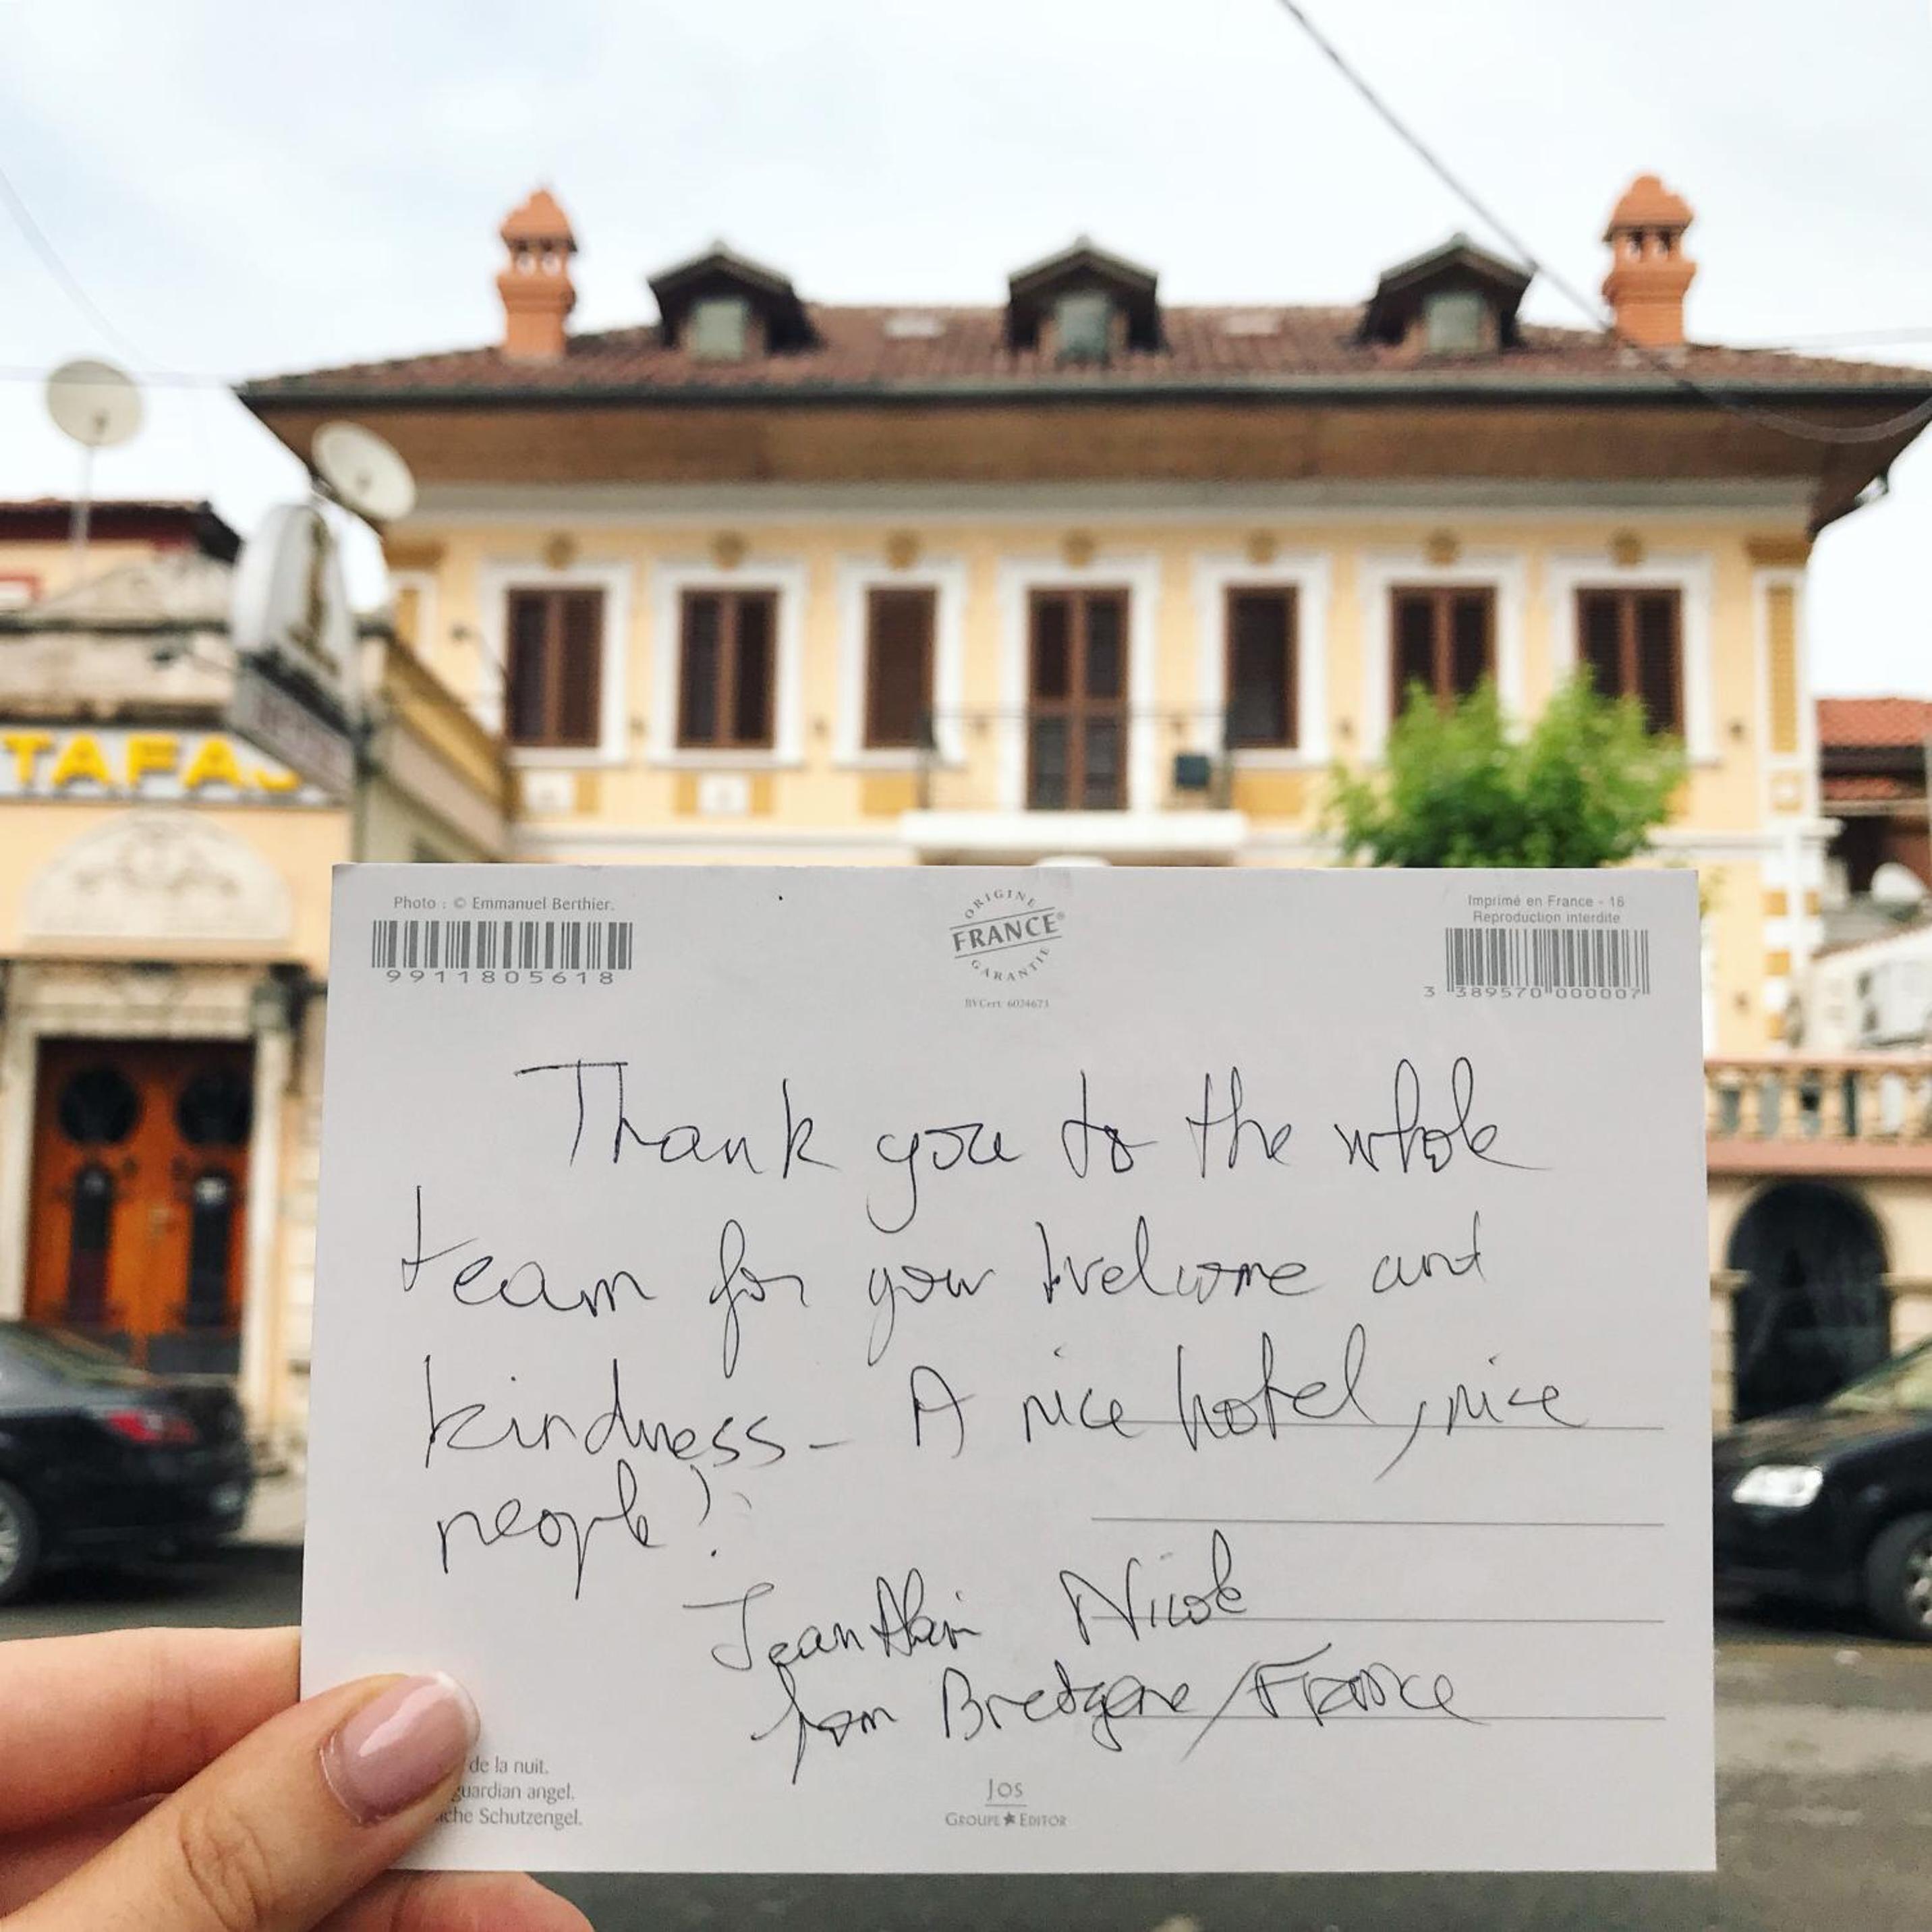 TAFA
Photo : © Emmanuel Berthier.
9911805618
ORIGINE
FRANCE®
GARANTIE
BVCert. 6024673
Imprimé en France - 16
Reproduction interdite
3 389570 000007
Thank you to the whole
team for your welcome and
kindness - A nice hotel, nice
people !
Jean Alain Nicole
from Bretagne/France
de la nuit.
guardian angel.
che Schutzengel.
JOS
GROUPE ★ EDITOR